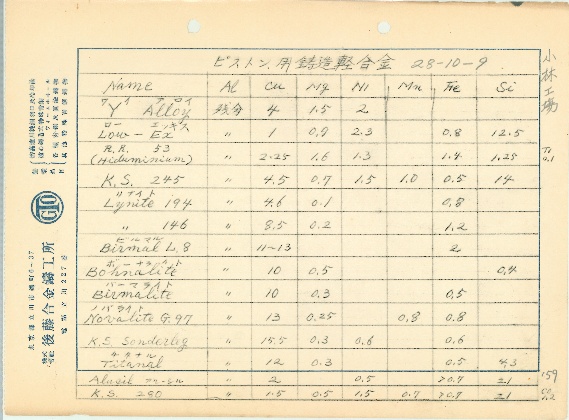 ピストン用鋳造軽合金 28-10-9
小林工場
Name Al Cu Mg Ni Mn Fe Si
"Y" Alloy 残分 4 1.5 2
ロー エッキス
Low-Ex 〃 1 0.9 2.3 0.8 12.5
R.R. 53
(Hiduminium) 〃 2.25 1.6 1.3 1.4 1.25 Ti 0.1
K.S. 245 〃 4.5 0.7 1.5 1.0 0.5 14
リナイト
Lynite 194 〃 4.6 0.1 0.8
〃 146 〃 8.5 0.2 1.2
ビルマル
Birmal L.8 〃 11-13 2
ボーナライト
Bohnalite 〃 10 0.5 0.4
バーマライト
Birmalite 〃 10 0.3 0.5
ノバライト
Novalite G.97 〃 13 0.25 0.8 0.8
K.S. Sonderleg 〃 15.5 0.3 0.6 0.6
チタナル
Titanal 〃 12 0.3 0.5 4.3
Alusil アルーシル 〃 2 0.5 >0.7 21
K.S. 280 〃 1.5 0.5 1.5 0.7 >0.7 21
株式会社 後藤合金鑄工所
東京都立川市
電話立川227番